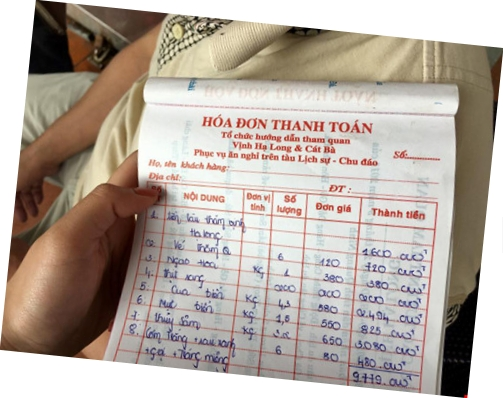 HÓA ĐƠN THANH TOÁN
Tổ chức hướng dẫn tham quan
Vịnh Hạ Long & Cát Bà
Phục vụ ăn nghỉ trên tàu Lịch sự - Chu đáo
Số:
Họ, tên khách hàng:
Địa chỉ: ĐT :
NỘI DUNG Đơn vị tính Số lượng Đơn giá Thành tiền
1. tiền tàu thăm vịnh
Hạ long 1.600.000đ
2. Vé thăm Q 6 120 720.000đ
3. Ngao hoa kg 1 380 380.000đ
4. Thịt rang 200 200.000đ
5. Cua biển kg 4,3 580 2.494.000đ
6. Mực biển kg 1,5 550 825.000đ
7. 650 3.080.000đ
8. Cơm Trắng + rau xanh 6 80 480.000đ
+ Tráng miệng 9.779.000đ